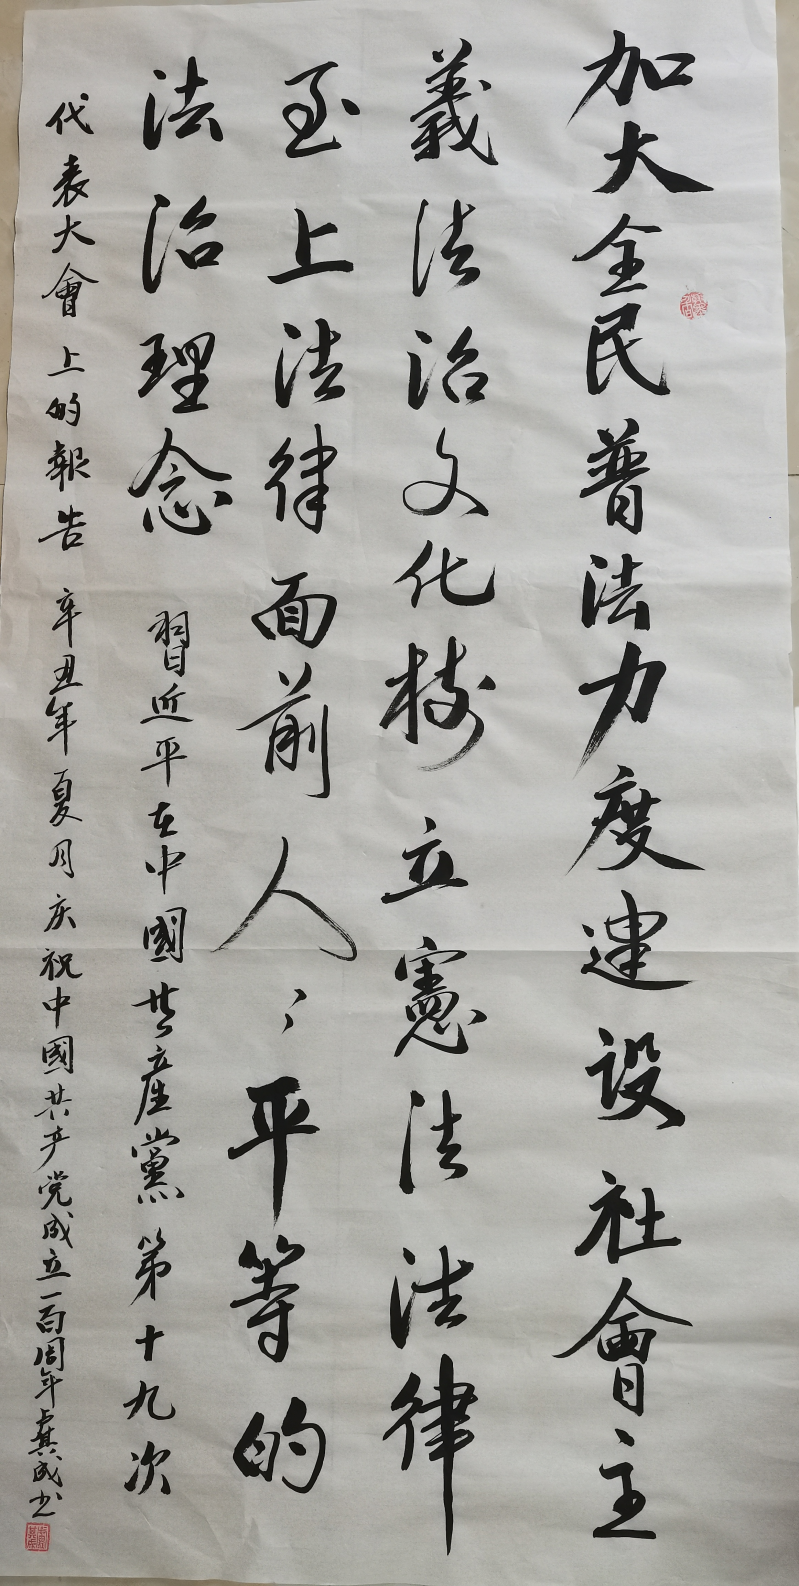 加大全民普法力度建设社會主
義法治文化树立憲法法律
至上法律面前人〻平等的
法治理念 習近平在中國共產黨第十九次
代表大會上的報告 辛丑年夏月庆祝中國共产党成立一百周年 成书